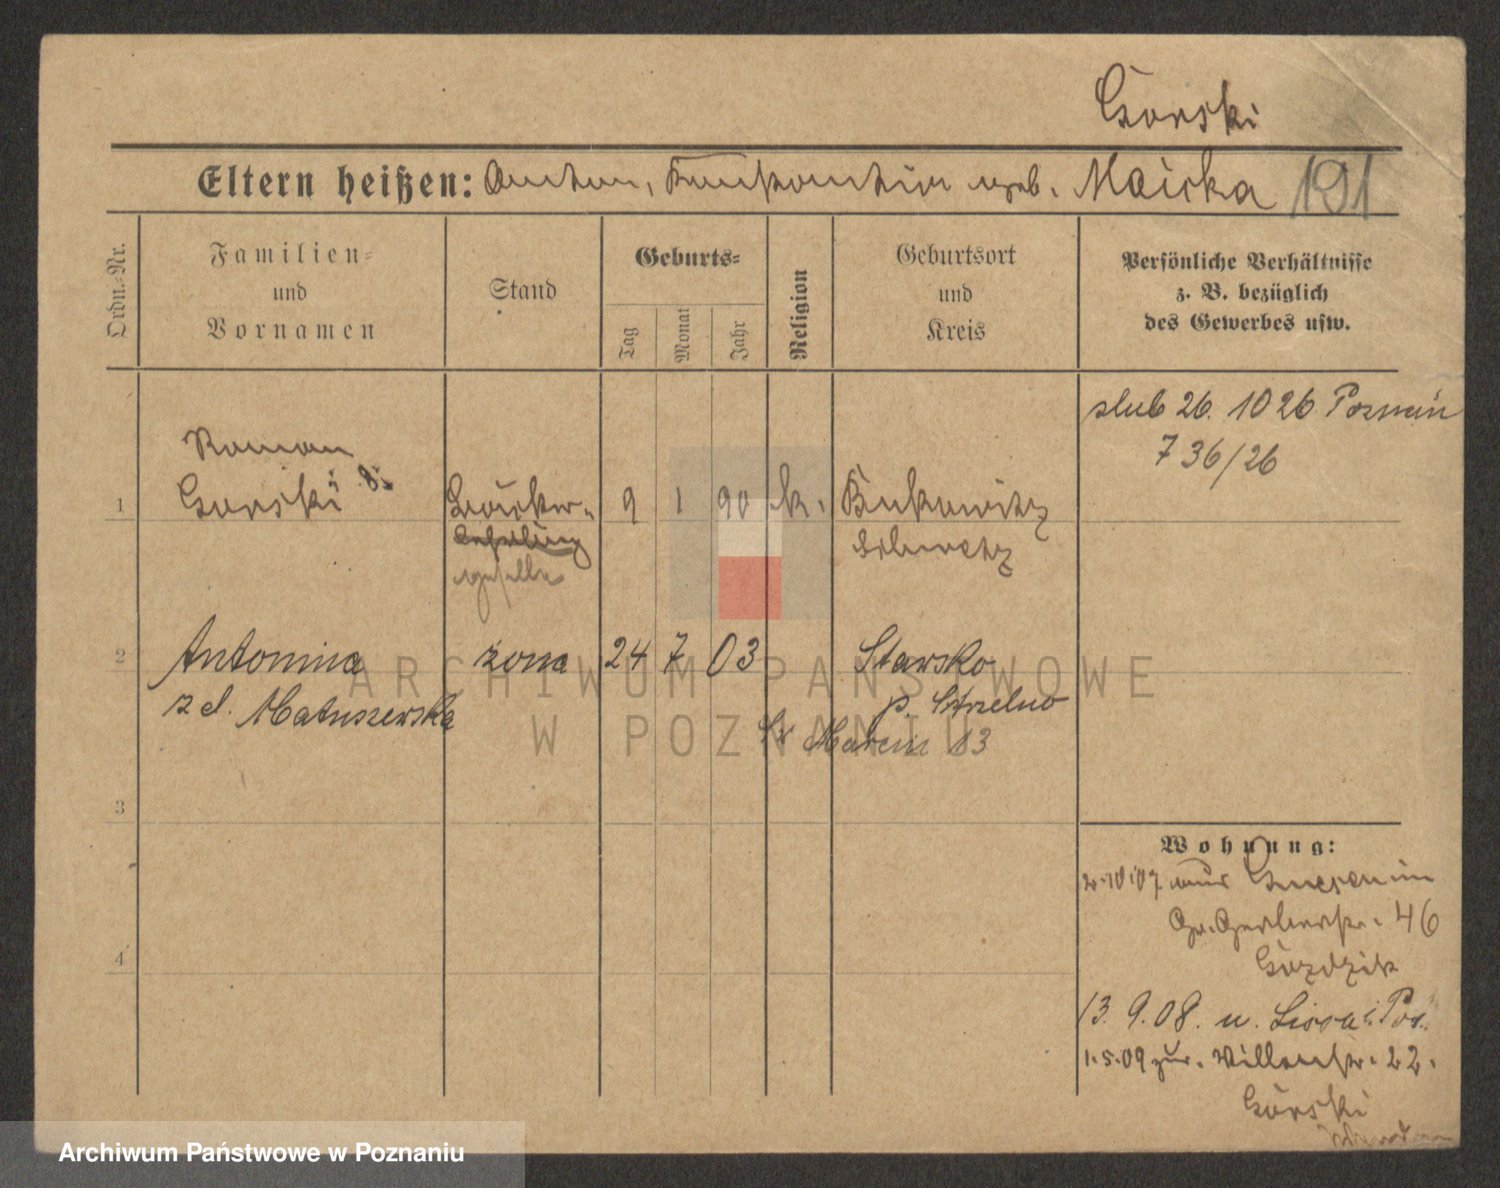 Górski
Eltern heißen: Anton, Konstantin geb. Maicka 191
Ordn.=Nr.
Familien=
und
Vornamen
Stand
Geburts=
Tag
Monat
Jahr
Religion
Geburtsort
und
Kreis
Persönliche Verhältnisse
z. B. bezüglich
des Gewerbes usw.
ślub 26. 10 26 Poznań
736/26
Roman
1 Gorski Bäcker- 9 1 90 k. Bukowitz
Lehrling
geselle
2 Antonina żona 24 7 03 Starsko
z d. Matuszewska p. Strzelno
Św Marcin 13
3
4
Wohnung:
2.10.07 aus Gnesen in
Gr. Gerberstr. 46
Gozdzik
13. 9. 08. n. Lissa i. Pos.
1.5.09 zur. Willenstr. 22.
Górski
ARCHIWUM PAŃSTWOWE
W POZNANIU
Archiwum Państwowe w Poznaniu